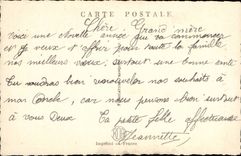 CARTE POSTALE
Chère Grand mère
Voici une nouvelle année que va commencer
et je veux t'offrir pour toute la famille
nos meilleurs vœux, surtout une bonne santé
Tu voudras bien nos souhaits à
mon Oncle, car nous pensons bien surtout
à vous Deux. Ta petite fille affectueuse
Jeannette
Imprimé en France